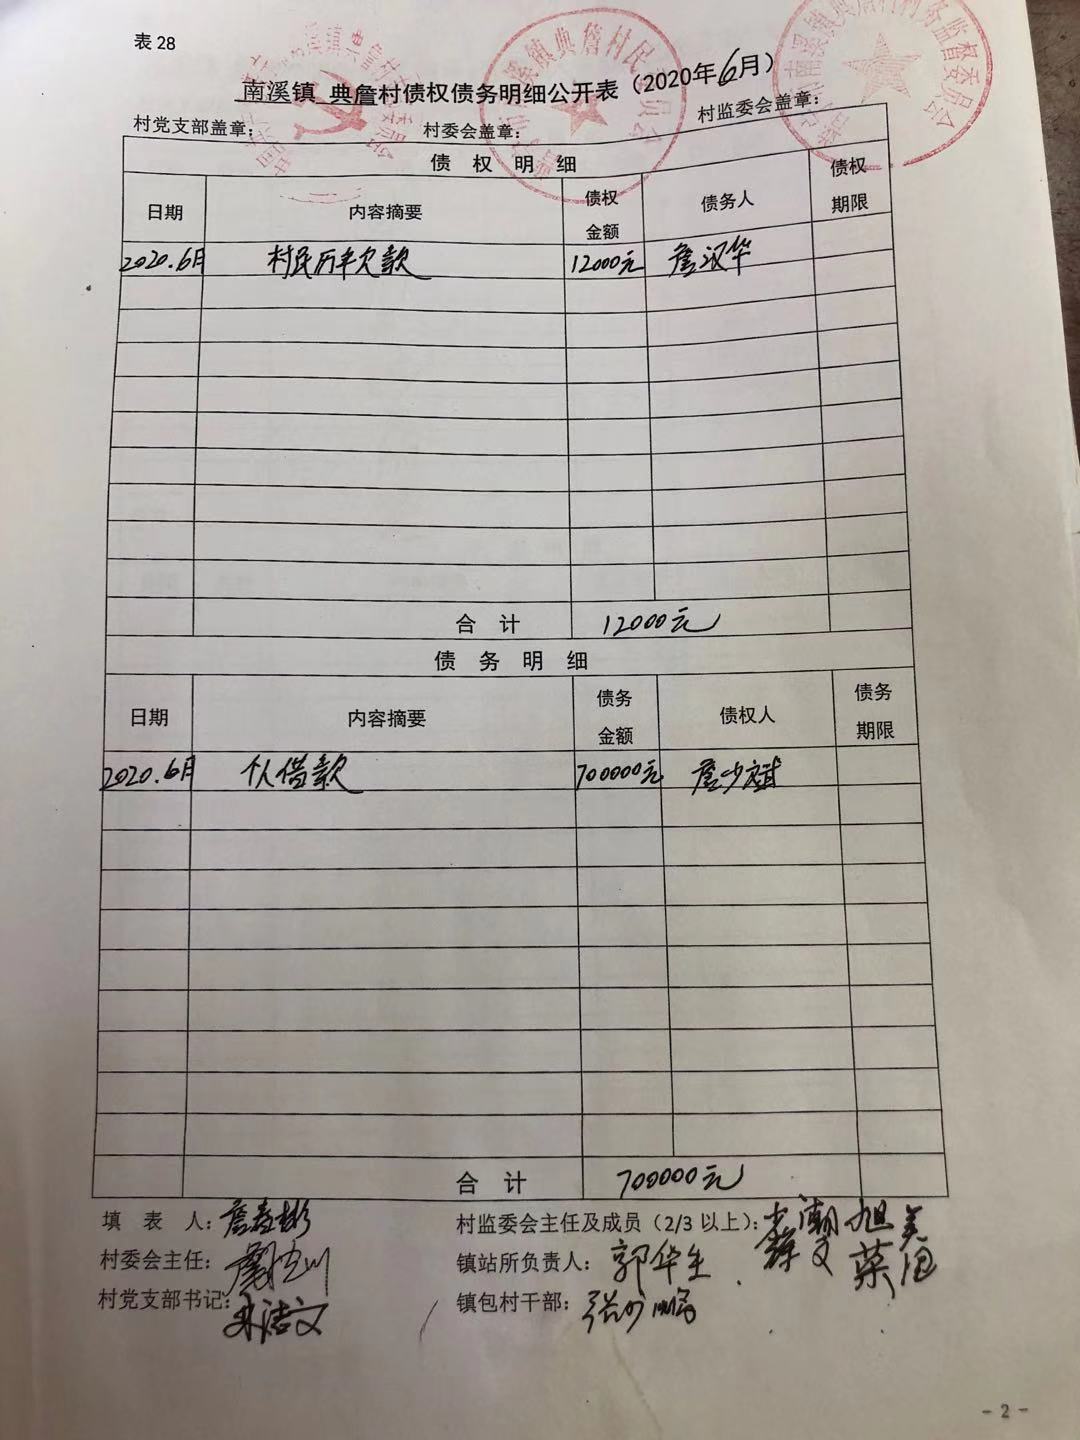 表 28
南溪镇 典詹村债权债务明细公开表（2020年6月）
村党支部盖章： 村委会盖章： 村监委会盖章：
债 权 明 细
日期 内容摘要 债权金额 债务人 债权期限
2020.6月 村民历年欠款 12000元 詹汉华
合 计 12000元
债 务 明 细
日期 内容摘要 债务金额 债权人 债务期限
2020.6月 个人借款 700000元 詹少斌
合 计 700000元
填 表 人： 村监委会主任及成员（2/3 以上）：
村委会主任： 镇站所负责人：郭华生
村党支部书记： 镇包村干部：
- 2 -